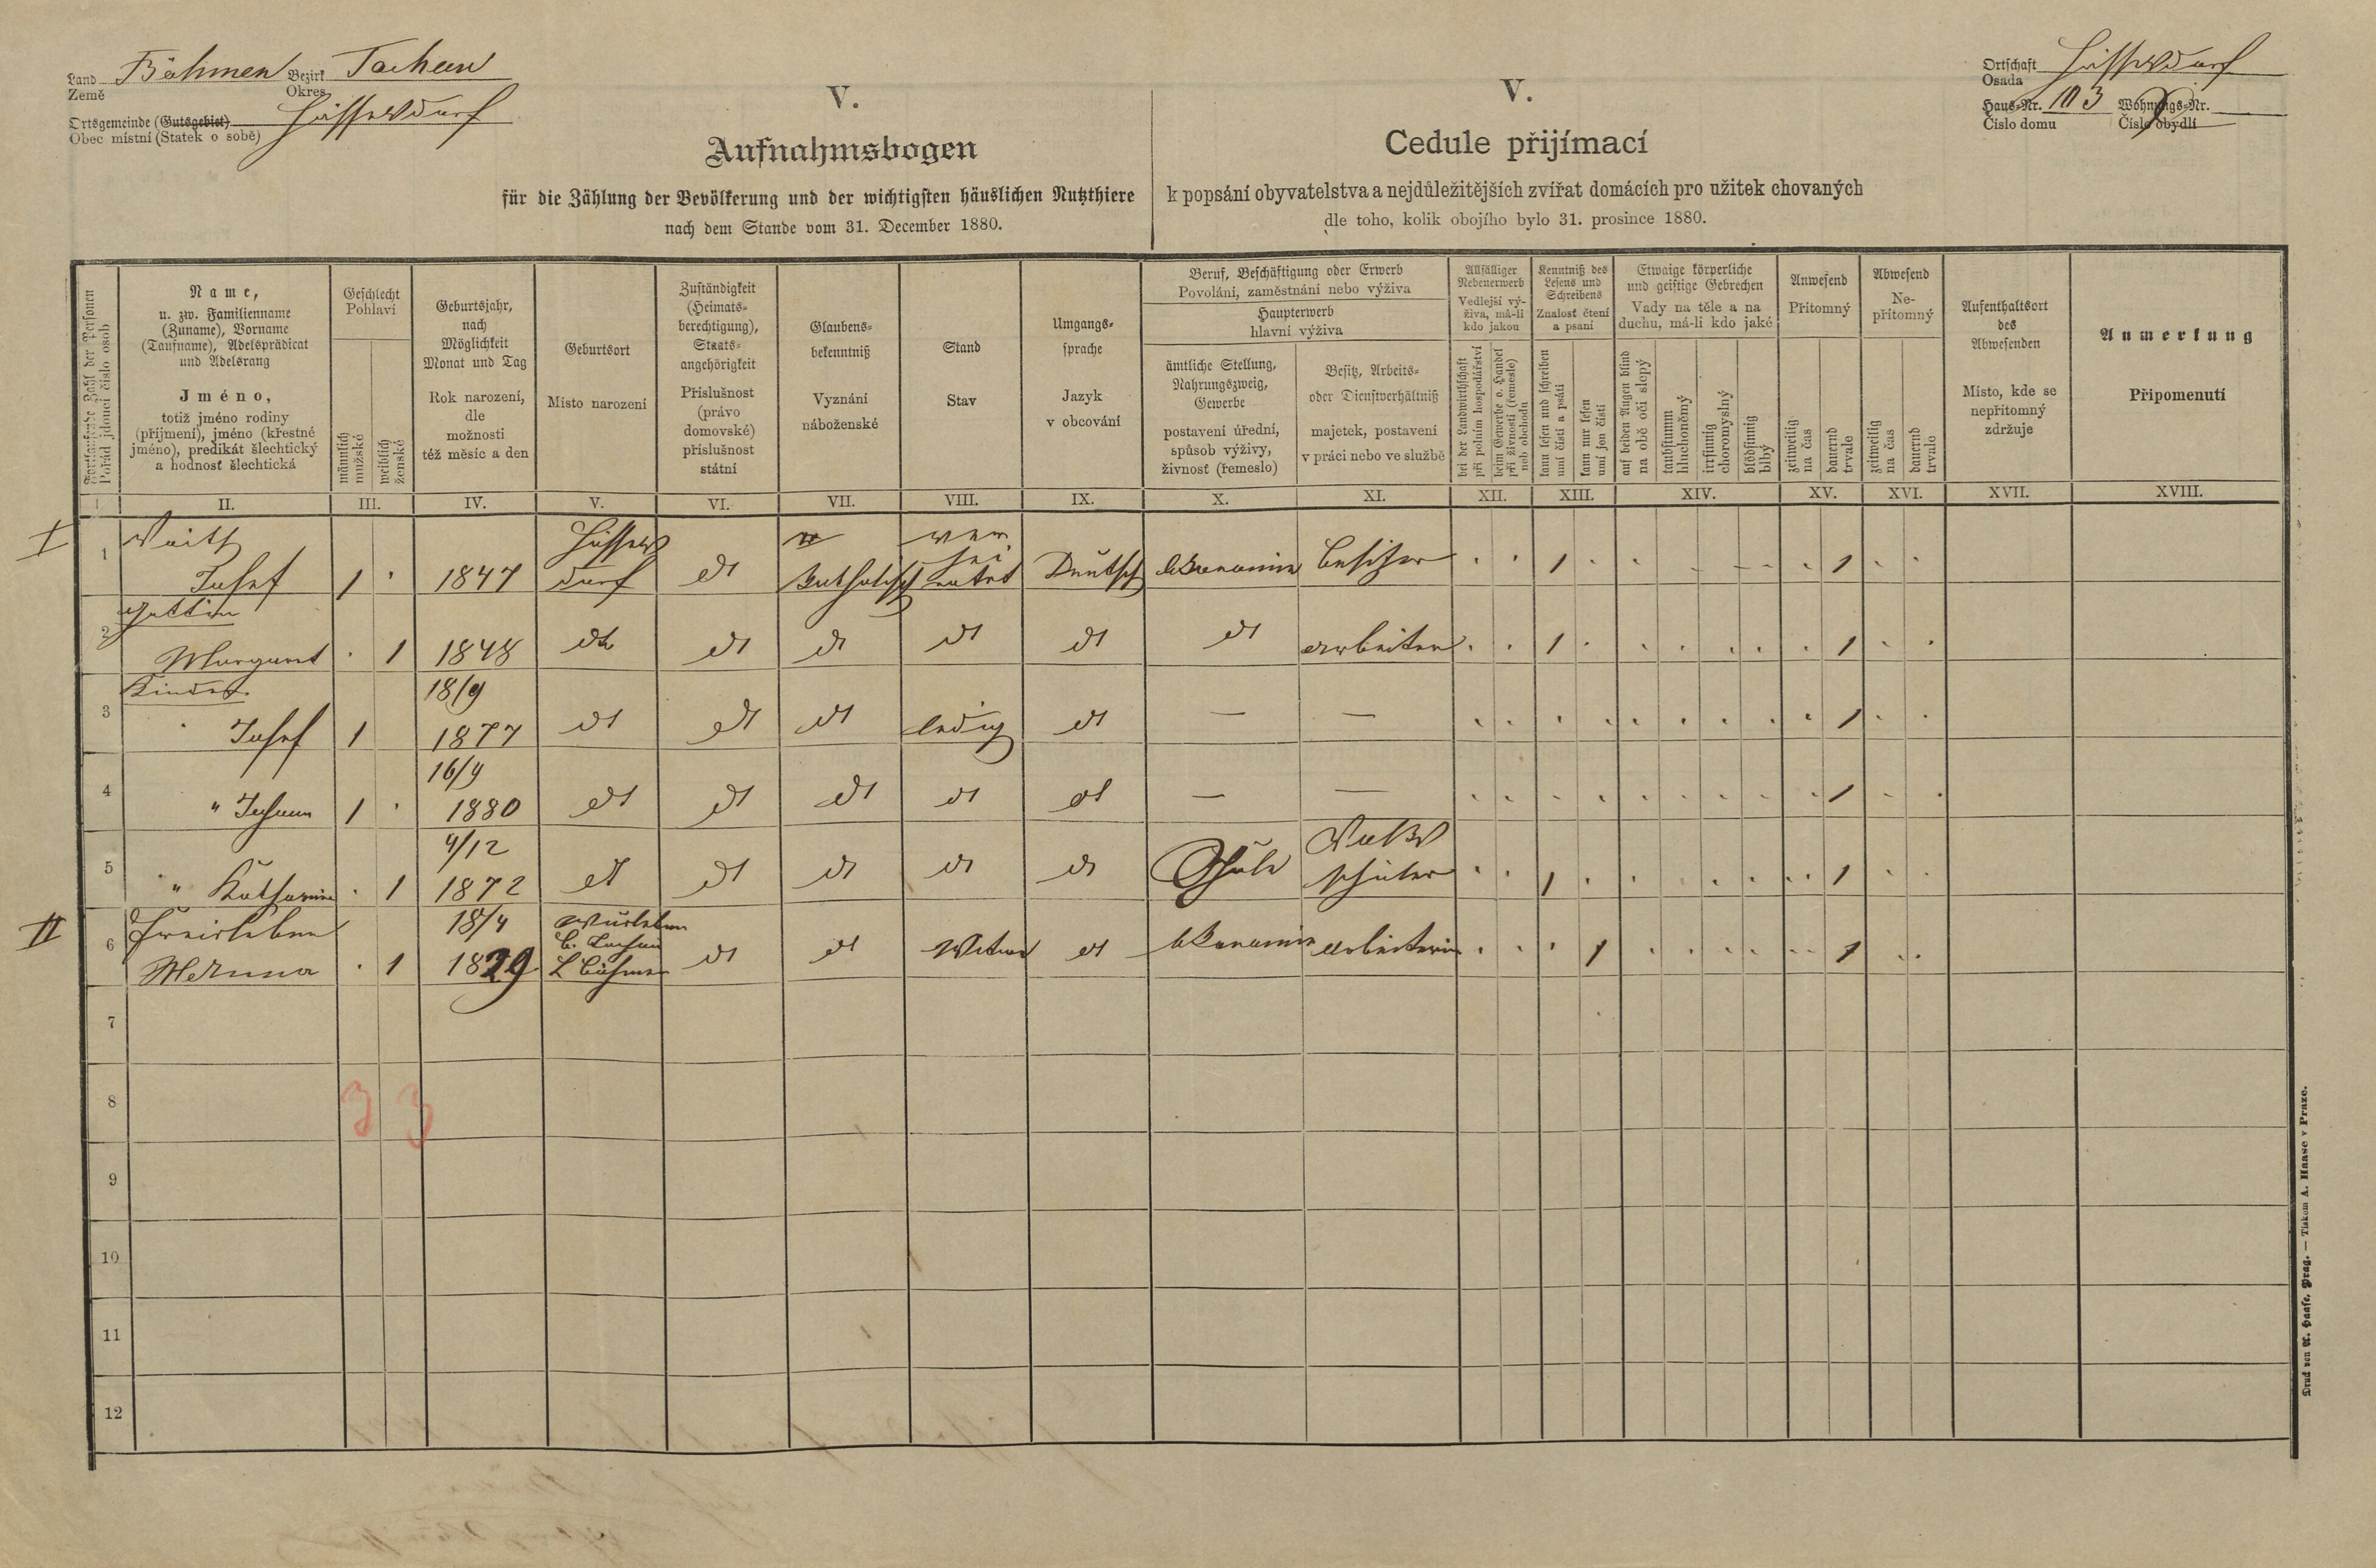 Land Böhmen Bezirk Tachau
Země Okres
Ortsgemeinde (Gutsgebiet)
Obec místní (Statek o sobě)
Ortschaft
Osada
Haus-Nr. 103 Wohnungs-Nr.
Číslo domu Číslo obydlí
V.
Aufnahmsbogen
für die Zählung der Bevölkerung und der wichtigsten häuslichen Nutzthiere
nach dem Stande vom 31. December 1880.
V.
Cedule přijímací
k popsání obyvatelstva a nejdůležitějších zvířat domácích pro užitek chovaných
dle toho, kolik obojího bylo 31. prosince 1880.
Fortlaufende Zahl der Personen
Pořád jdoucí číslo osob
Name,
u. zw. Familienname
(Zuname), Vorname
(Taufname), Adelsprädicat
und Adelsrang
Jméno,
totiž jméno rodiny
(příjmení), jméno (křestné
jméno), predikát šlechtický
a hodnost šlechtická
Geschlecht
Pohlaví
männlich
mužské
weiblich
ženské
Geburtsjahr,
nach
Möglichkeit
Monat und Tag
Rok narození,
dle
možnosti
též měsíc a den
Geburtsort
Místo narození
Zuständigkeit
(Heimats-
berechtigung),
Staats-
angehörigkeit
Příslušnost
(právo
domovské)
příslušnost
státní
Glaubens-
bekenntniß
Vyznání
náboženské
Stand
Stav
Umgangs-
sprache
Jazyk
v obcování
Beruf, Beschäftigung oder Erwerb
Povolání, zaměstnání nebo výživa
Haupterwerb
hlavní výživa
ämtliche Stellung,
Nahrungszweig,
Gewerbe
postavení úřední,
spůsob výživy,
živnost (řemeslo)
Besitz, Arbeits-
oder Dienstverhältniß
majetek, postavení
v práci nebo ve službě
Allfälliger
Nebenerwerb
Vedlejší vý-
živa, má-li
kdo jakou
bei der Landwirthschaft
při polním hospodářství
beim Gewerbe o. Handel
při živnosti (řemeslo)
neb obchodu
Kenntniß des
Lesens und
Schreibens
Znalosť čtení
a psaní
kann lesen und schreiben
umí čísti a psáti
kann nur lesen
umí jen čísti
Etwaige körperliche
und geistige Gebrechen
Vady na těle a na
duchu, má-li kdo jaké
auf beiden Augen blind
na obě oči slepý
taubstumm
hluchoněmý
irrsinnig
choromyslný
blödsinnig
blbý
Anwesend
Přítomný
zeitweilig
na čas
dauernd
trvale
Abwesend
Ne-
přítomný
zeitweilig
na čas
dauernd
trvale
Aufenthaltsort
des
Abwesenden
Místo, kde se
nepřítomný
zdržuje
Anmerkung
Připomenutí
I II. III. IV. V. VI. VII. VIII. IX. X. XI. XII. XIII. XIV. XV. XVI. XVII. XVIII.
I
1 Veith
Josef 1 1847 dorf dt katholisch Deutsch Ökonomie besitzer 1 1
Gattin
2 Margaret 1 1848 dt dt dt dt dt dt arbeiter 1 1
Kinder
18/9
3 Josef 1 1877 dt dt dt ledig dt — — 1
16/9
4 " Johann 1 1880 dt dt dt dt dt — — 1
4/12 Volks
5 " Katharina 1 1872 dt dt dt dt dt Schule schüler 1 1
II
18/4
6 1 1829 Böhmen dt dt Witwe dt Ökonomie arbeiterin 1 1
7
8 3 3
9
10
11
12
Druck von A. Haase, Prag. — Tiskem A. Haase v Praze.